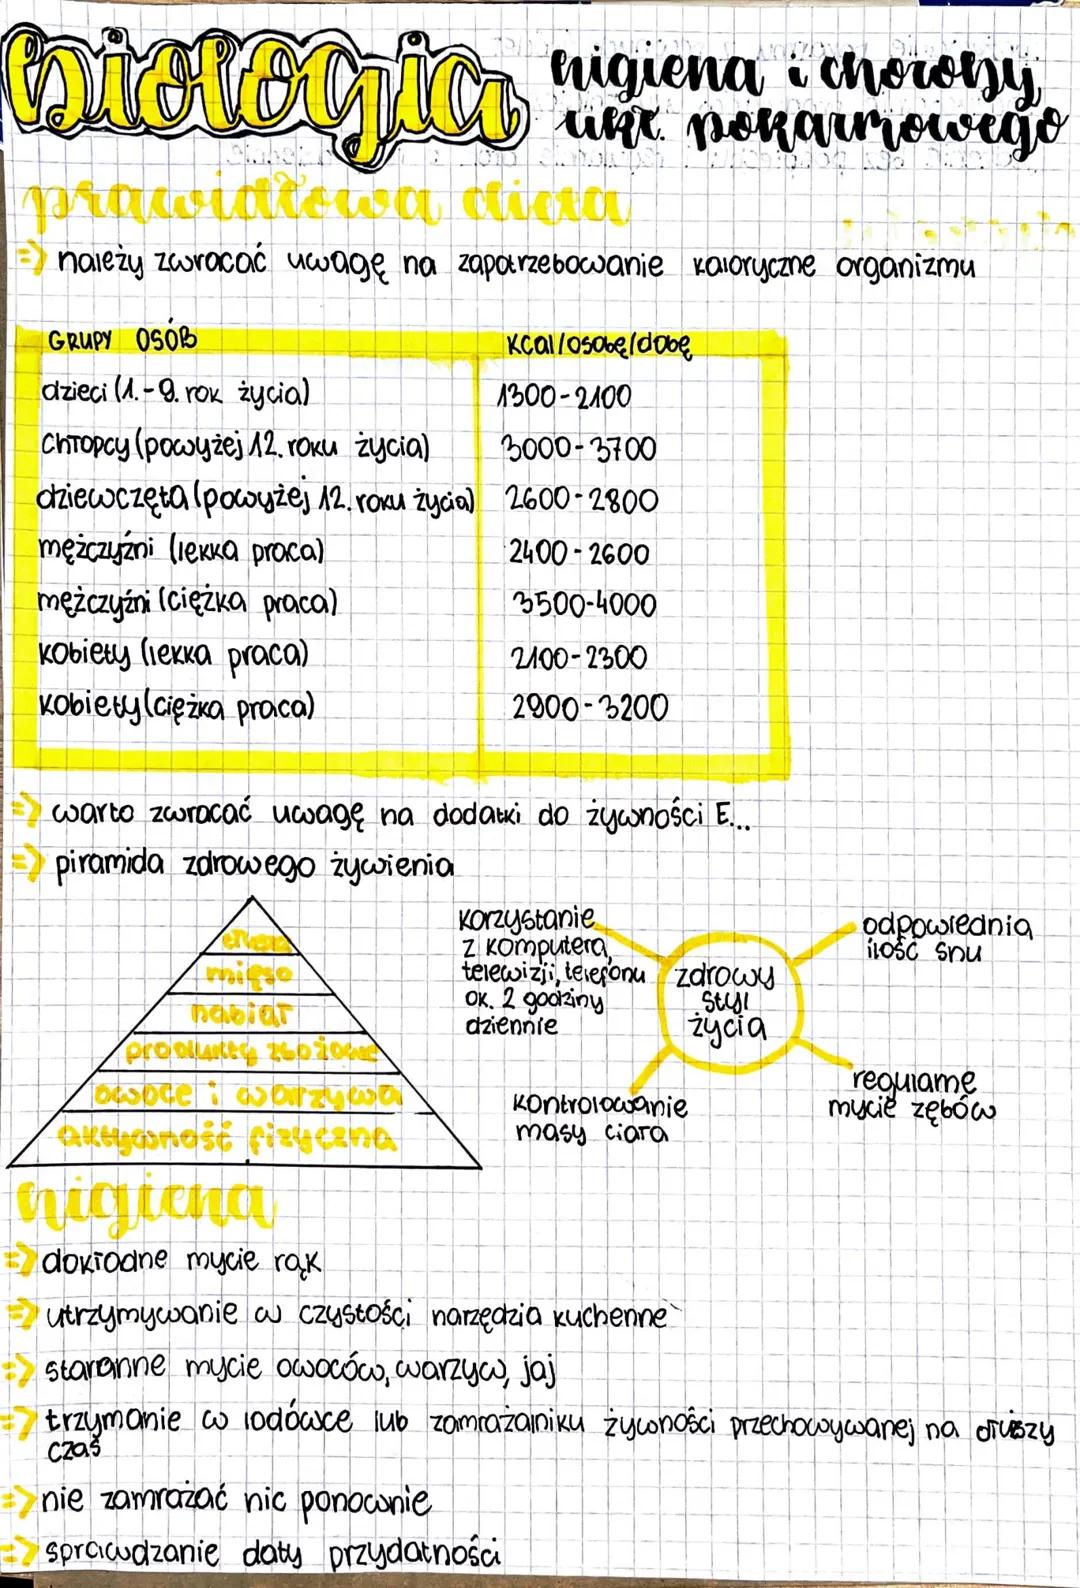 biologia
higiena i choroby
ukł. pokarmowego
prawidłowa dieta
=> należy zwracać uwagę na zapotrzebowanie kaloryczne organizmu
GRUPY OSÓB kcal/osobę/dobę
dzieci (1.-9. rok życia) 1300-2100
chłopcy (powyżej 12. roku życia) 3000-3700
dziewczęta (powyżej 12. roku życia) 2600-2800
mężczyźni (lekka praca) 2400-2600
mężczyźni (ciężka praca) 3500-4000
kobiety (lekka praca) 2100-2300
kobiety (ciężka praca) 2900-3200
=> warto zwracać uwagę na dodatki do żywności E...
=> piramida zdrowego żywienia
mięso
nabiał
produkty zbożowe
owoce i warzywa
aktywność fizyczna
korzystanie
z komputera,
telewizji, telefonu
ok. 2 godziny
dziennie
zdrowy
styl
życia
odpowiednia
ilość snu
kontrolowanie
masy ciała
regularne
mycie zębów
higiena
=> dokładne mycie rąk
=> utrzymywanie w czystości narzędzia kuchenne
=> staranne mycie owoców, warzyw, jaj
=> trzymanie w lodówce lub zamrażalniku żywności przechowywanej na dłuższy
czas
=> nie zamrażać nic ponownie
=> sprawdzanie daty przydatności